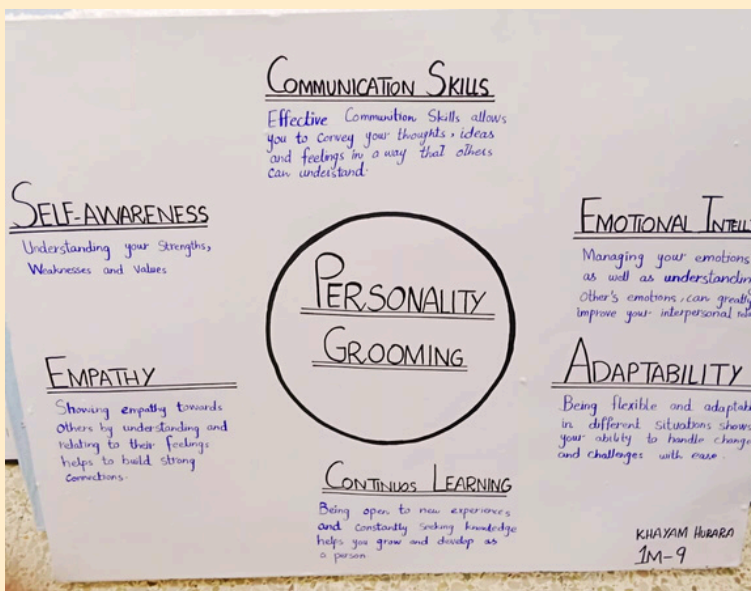 COMMUNICATION SKILLS
Effective Communition Skills allows
you to convey your thoughts, ideas
and feelings in a way that others
can understand.
SELF-AWARENESS
Understanding your Strengths,
Weaknesses and Values
EMOTIONAL INTELL
Managing your emotions
as well as understandin
other's emotions, can greatly
improve your interpersonal
PERSONALITY
GROOMING
EMPATHY
Showing empathy towards
others by understanding and
relating to their feelings
helps to build strong
connections.
ADAPTABILITY
Being flexible and adaptab
in different situations shows
your ability to handle change
and challenges with ease.
CONTINUOS LEARNING
Being open to new experiences
and constantly seeking knowledge
helps you grow and develop as
a person
KHAYAM HURARA
1M-9